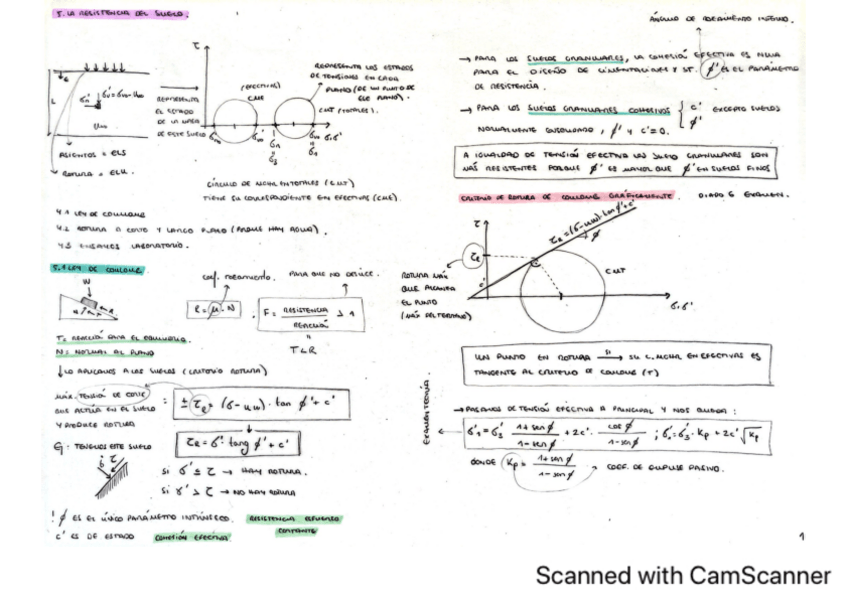 5. LA RESISTENCIA DEL SUELO.
τ
REPRESENTA LOS ESTADOS
DE TENSIONES EN CADA
PLANO (DE UN PUNTO DE
ESE PLANO).
(EFECTIVAS)
CME
CMT (TOTALES).
REPRESENTA
EL ESTADO
DE LA
DE ESTE SUELO
L
ASIENTOS = ELS
ROTURA = ELU.
CÍRCULO DE MOHR EN TOTALES (CMT)
TIENE SU CORRESPONDIENTE EN EFECTIVAS (CME).
4.1 LEY DE COULOMB
4.2 ROTURA A CORTO Y LARGO PLAZO (PORQUE HAY AGUA).
4.3 ENSAYOS LABORATORIO.
5.1 LEY DE COULOMB
W
COEF. ROZAMIENTO.
PARA QUE NO DESLICE.
R = μ · N
F = RESISTENCIA / REACCIÓN > 1
T ≤ R
T = REACCIÓN PARA EL EQUILIBRIO.
N = NORMAL AL PLANO
↓ LO APLICAMOS A LOS SUELOS (CRITERIO ROTURA)
MÁX. TENSIÓN DE CORTE
QUE ACTÚA EN EL SUELO
Y PRODUCE ROTURA
: ± τR = (σ - uw) · tan ϕ' + c'
τR = σ' · tang ϕ' + c'
Ej: TENEMOS ESTE SUELO
SI σ' ≤ τ → HAY ROTURA.
SI σ' > τ → NO HAY ROTURA
! ϕ ES EL ÚNICO PARÁMETRO INTRÍNSECO. RESISTENCIA ESFUERZO
CORTANTE
c' ES DE ESTADO COHESIÓN EFECTIVA
ÁNGULO DE ROZAMIENTO INTERNO.
→ PARA LOS SUELOS GRANULARES, LA COHESIÓN EFECTIVA ES NULA
PARA EL DISEÑO DE CIMENTACIONES Y ST. ϕ' ES EL PARÁMETRO
DE RESISTENCIA.
→ PARA LOS SUELOS GRANULARES COHESIVOS { c' ϕ' EXCEPTO SUELOS
NORMALMENTE CONSOLIDADO, ϕ' Y c'=0.
A IGUALDAD DE TENSIÓN EFECTIVA LOS SUELO GRANULARES SON
MÁS RESISTENTES PORQUE ϕ' ES MAYOR QUE ϕ' EN SUELOS FINOS
CRITERIO DE ROTURA DE COULOMB GRÁFICAMENTE. DIAPO 6 EXAMEN.
τ
τR = (σ-uw)·tan ϕ'+c'
ϕ
τR
c'
CMT
σ, σ'
ROTURA MÁX
QUE ALCANZA
EL PUNTO
(MÁX DEL TERRENO)
UN PUNTO EN ROTURA SI → SU C. MOHR EN EFECTIVAS ES
TANGENTE AL CRITERIO DE COULOMB (T)
EXAMEN TEORÍA
→ PASAMOS DE TENSIÓN EFECTIVA A PRINCIPAL Y NOS QUEDA :
σ'1 = σ'3 · 1+sen ϕ / 1-sen ϕ + 2c' · cos ϕ / 1-sen ϕ ; σ'1 = σ'3 · Kp + 2c' √Kp
DONDE Kp = 1+sen ϕ / 1-sen ϕ → COEF. DE EMPUJE PASIVO.
1
Scanned with CamScanner